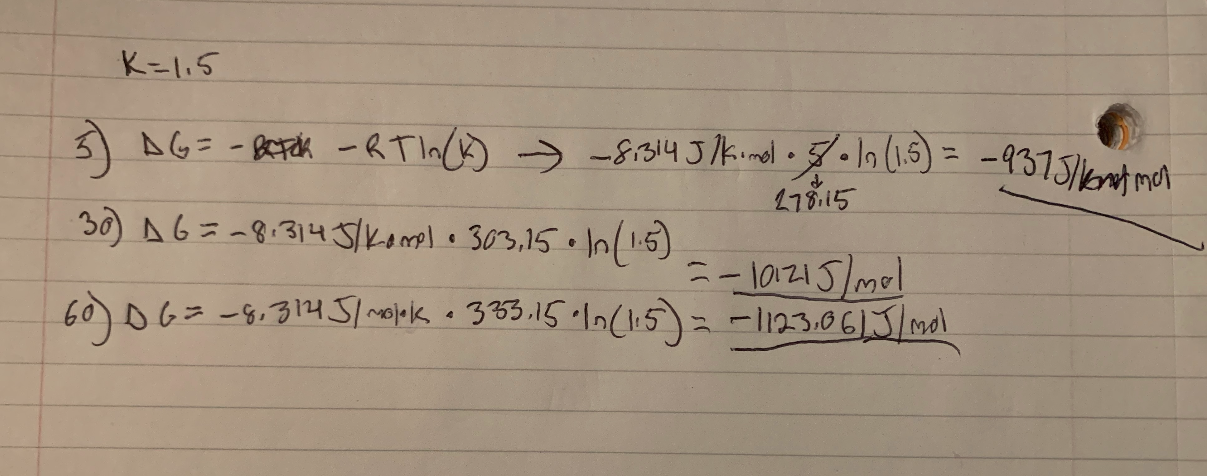 K=1.5
5) ΔG = - -RTln(K) → -8.314 J/K·mol · 5 · ln(1.5) = -937 J/ mol
278.15
30) ΔG = -8.314 J/K·mol · 303.15 · ln(1.5)
= -1021 J/mol
60) ΔG = -8.314 J/mol·K · 333.15 · ln(1.5) = -1123.061 J/mol